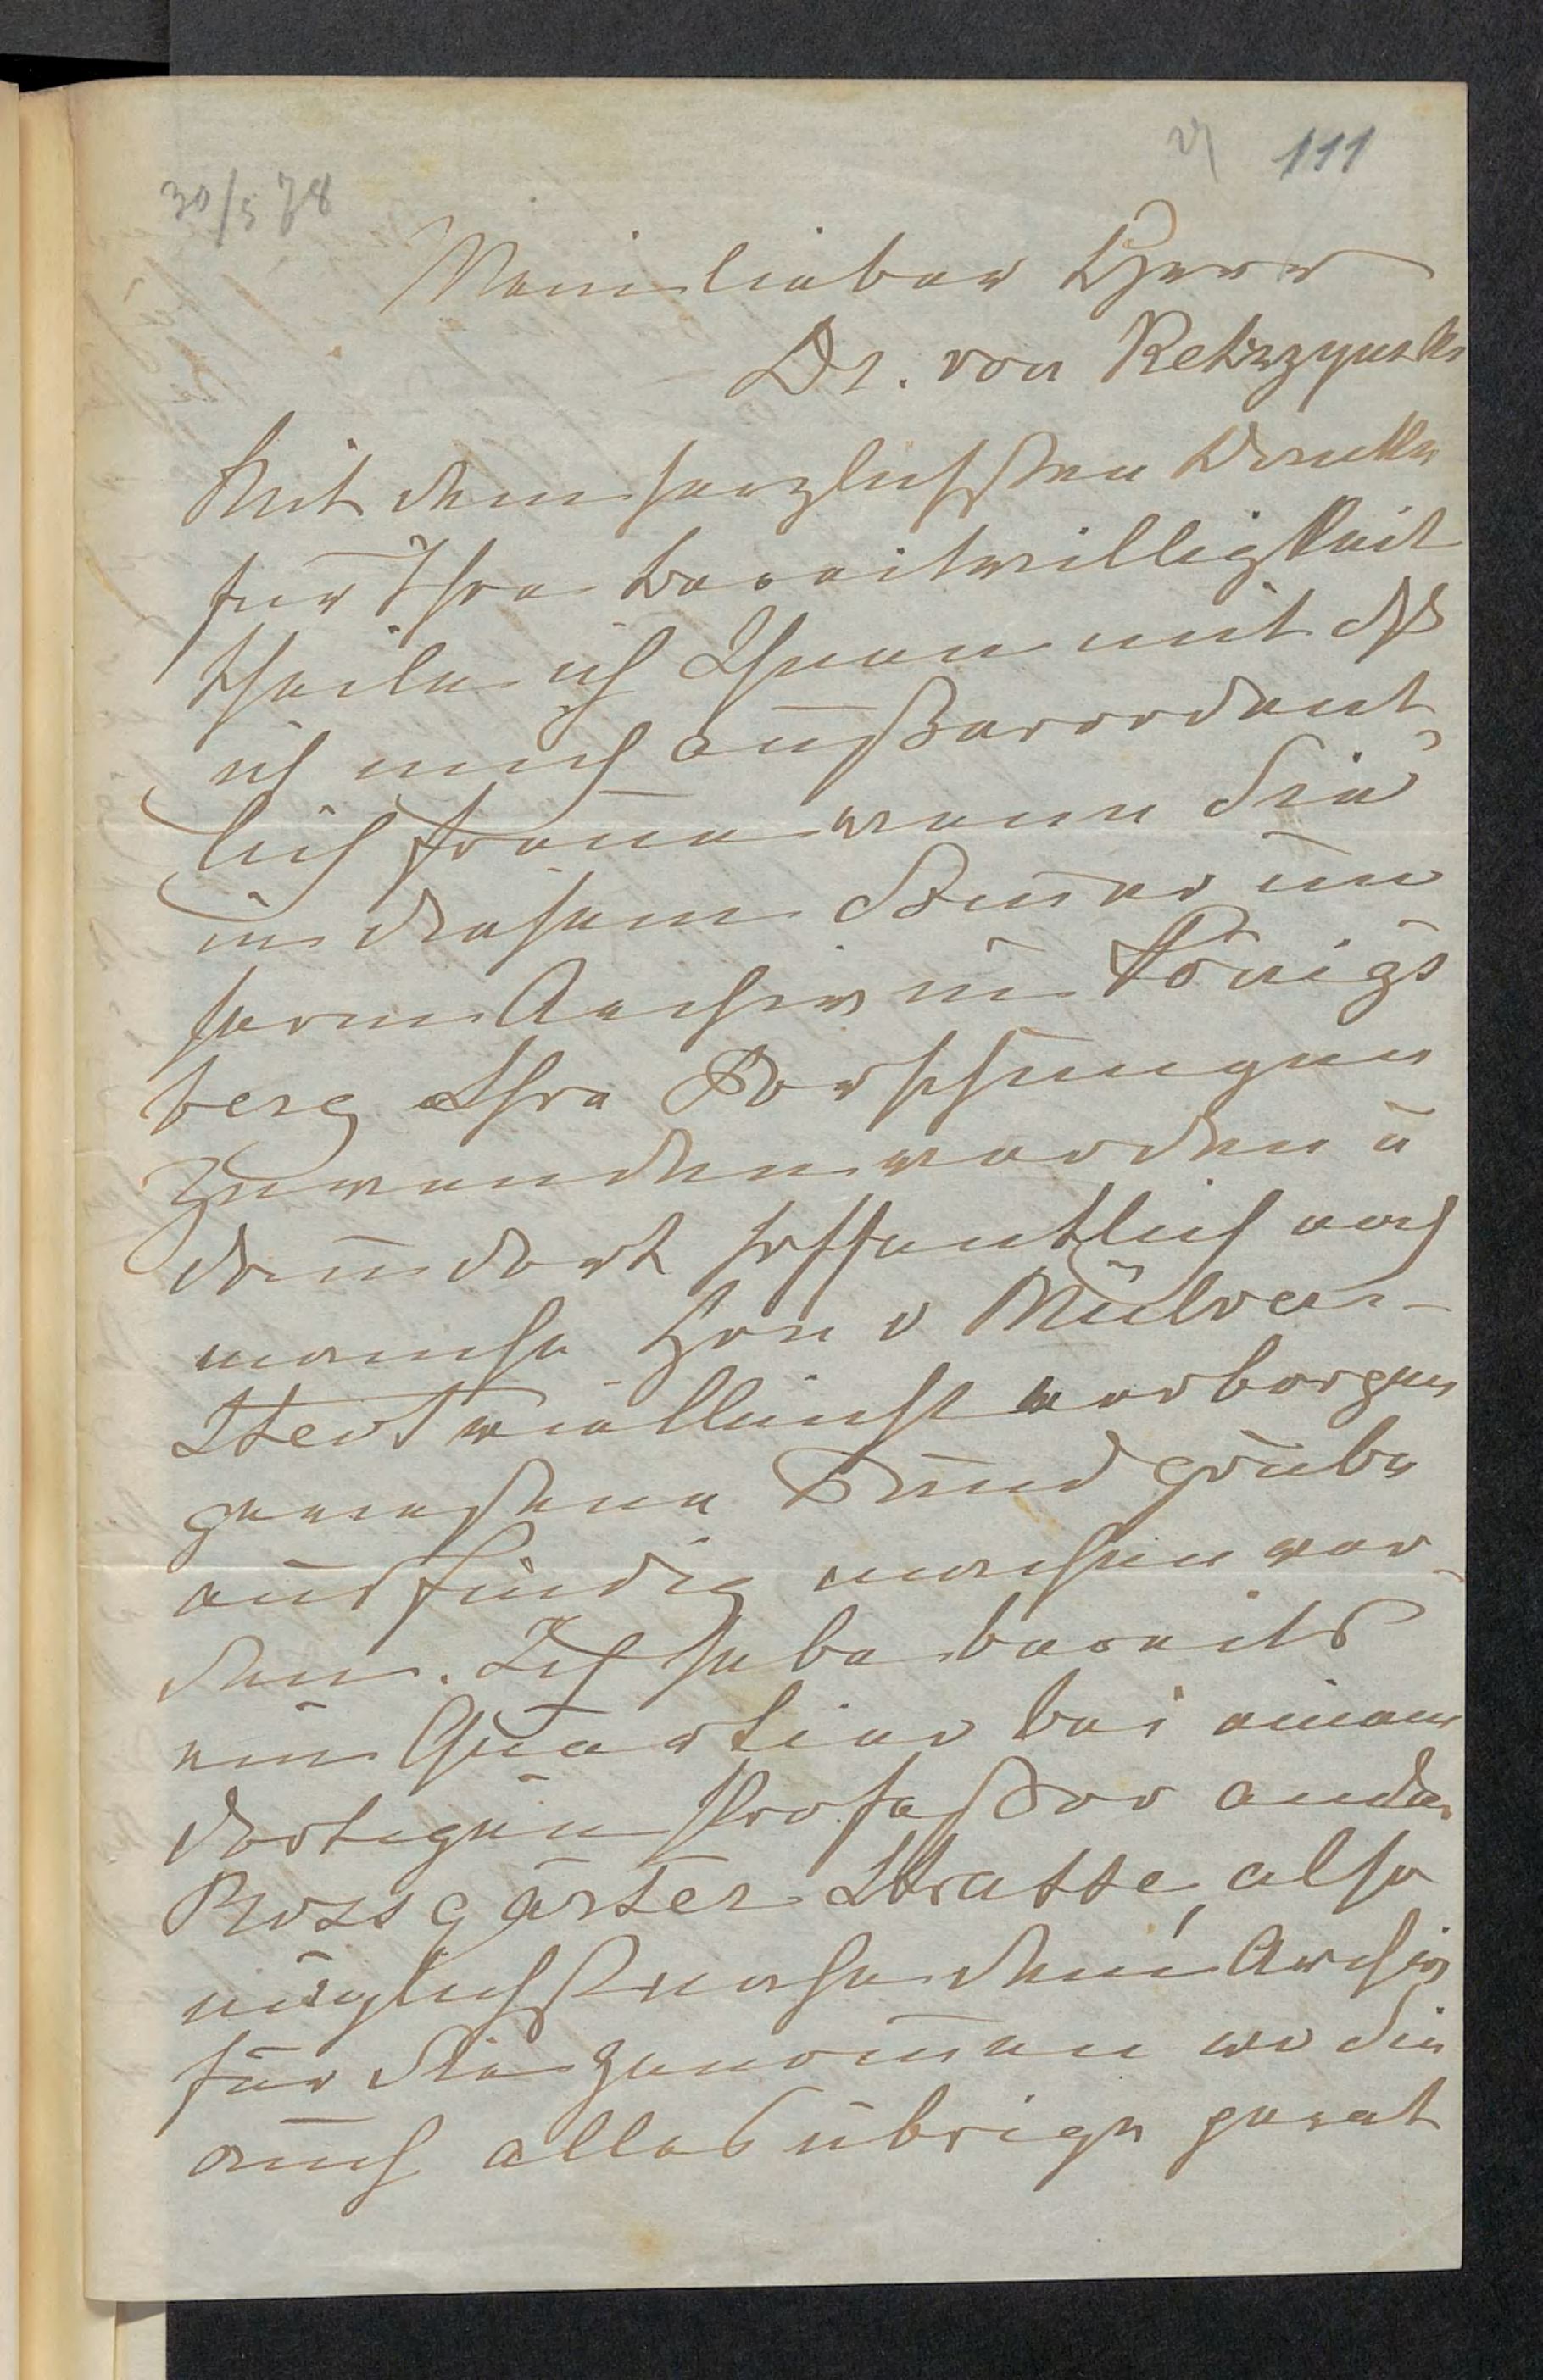 111
30/5 78
Mein lieber Herr
Dr. von Ketrzynski
Mit dem herzlichsten Danke
für Ihre Bereitwilligkeit
theile ich Ihnen mit dß
ich mich außerordent-
lich freue wenn Sie
in diesem Som̅er un
serm Archiv in Königs
berg Ihre Forschungen
zuwenden werden u
dann dort hoffentlich noch
manche Hrn v Mülver-
stedt vielleicht verborgen
gewesene Fundgrube
ausfindig machen wer-
den. Ich habe bereits
ein Quartier bei einem
dortigen Professor an der
Rossgärter Strasse, also
möglichst nahe dem Archiv
für Sie genom̅en wo Sie
auch alles übrige